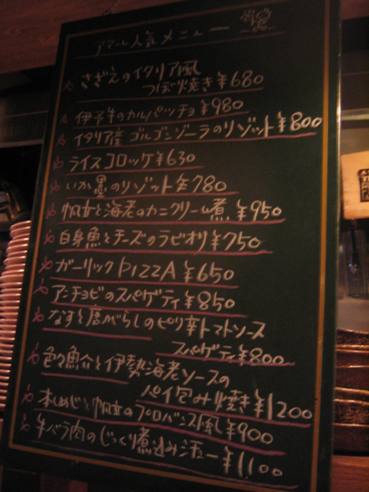 アマール人気メニュー
さざえのイタリア風
つぼ焼き¥680
伊予牛のカルパッチョ¥980
イタリア産ゴルゴンゾーラのリゾット¥800
ライスコロッケ¥630
いか墨のリゾット¥780
帆立と海老のカニクリーム煮¥950
白身魚とチーズのラビオリ¥750
ガーリックPIZZA¥650
アンチョビのスパゲティ¥850
なすと唐がらしのピリ辛トマトソース
スパゲティ¥800
色々魚介と伊勢海老ソースの
パイ包み焼き¥1200
本しめじと帆立のプロバンス風¥900
牛バラ肉のじっくり煮込みシチュー¥1,100